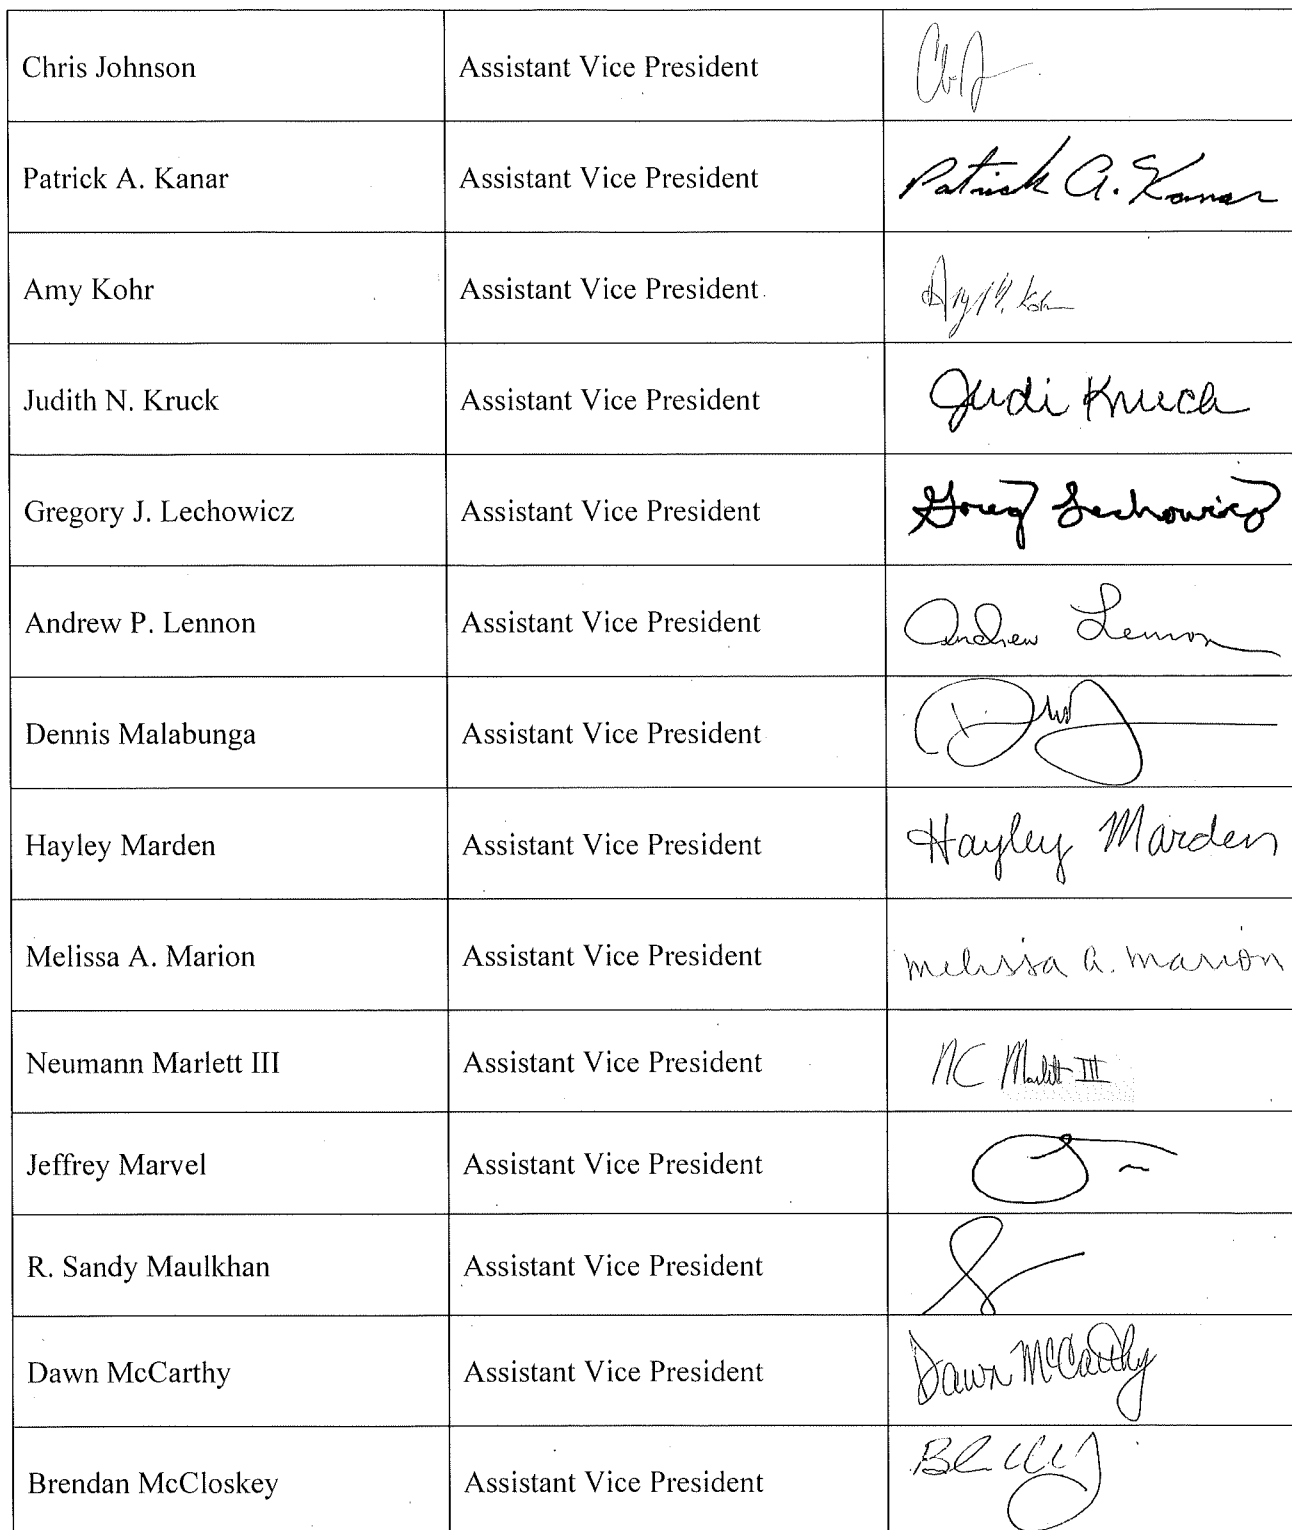 Chris Johnson Assistant Vice President
Patrick A. Kanar Assistant Vice President Patrick A. Kanar
Amy Kohr Assistant Vice President
Judith N. Kruck Assistant Vice President Judi Kruck
Gregory J. Lechowicz Assistant Vice President Greg Lechowicz
Andrew P. Lennon Assistant Vice President Andrew Lennon
Dennis Malabunga Assistant Vice President
Hayley Marden Assistant Vice President Hayley Marden
Melissa A. Marion Assistant Vice President Melissa A. Marion
Neumann Marlett III Assistant Vice President NC Marlett III
Jeffrey Marvel Assistant Vice President
R. Sandy Maulkhan Assistant Vice President
Dawn McCarthy Assistant Vice President Dawn McCarthy
Brendan McCloskey Assistant Vice President